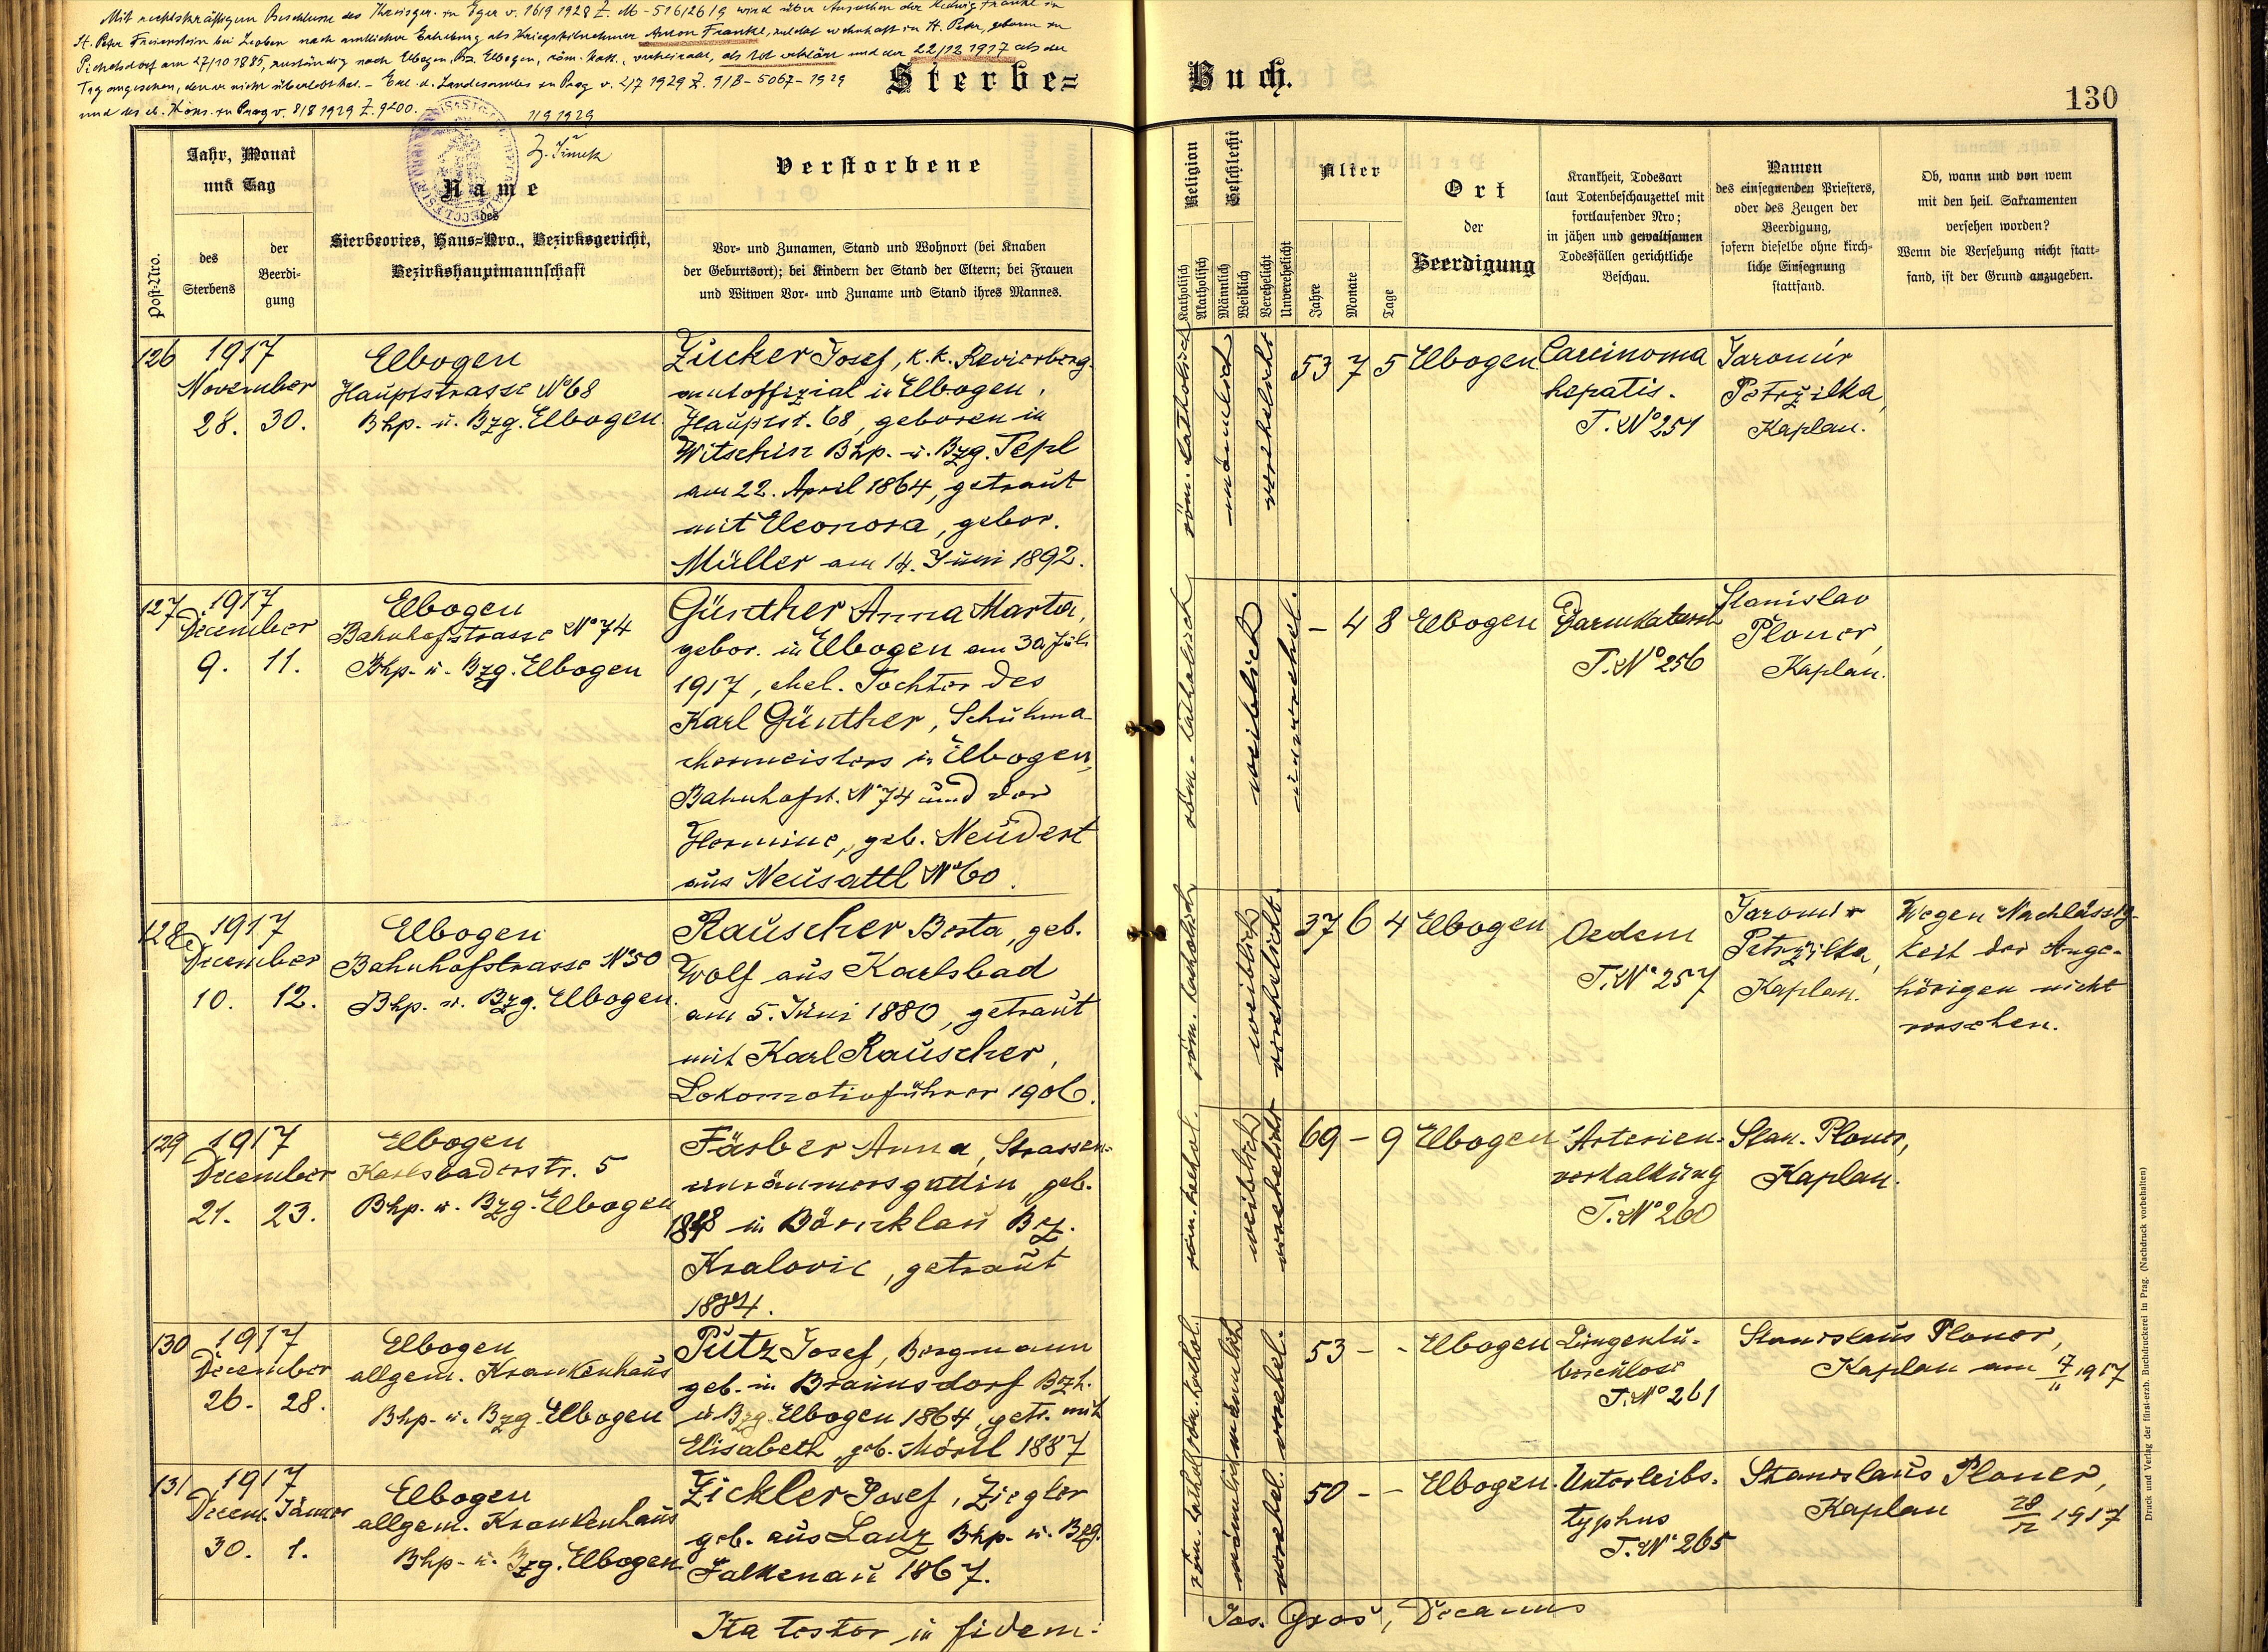 Mit rechtskräftigem Beschlusse des Kreisger. in Eger v. 16/9 1928 Z. M-516/26/9 wird über Ansuchen der Hedwig Frankl in
St. Peter Freienstein bei Leoben nach amtlicher Erhebung als Kriegsteilnehmer Anton Frankl, zuletzt wohnhaft in St. Peter, geboren zu
Pichelsdorf am 27/10 1885, zuständig nach Elbogen, Bz. Elbogen, röm. kath., verheiratet, als tot erklärt und der 22/12 1917 als der
Tag angesehen, den er nicht überlebt hat. – Erl. d. Landesamtes in Prag v. 2/7 1929 Z. 9/B-5067-1929
und des eb. Kons. in Prag v. 8/8 1929 Z. 9200.
1/9 1929
Sterbe=Buch.
130
Post-Nro.
Jahr, Monat
und Tag
des
Sterbens
der
Beerdi-
gung
Name
des
Sterbeortes, Haus=Nro., Bezirksgericht,
Bezirkshauptmannschaft
Verstorbene
Vor- und Zunamen, Stand und Wohnort (bei Knaben
der Geburtsort); bei Kindern der Stand der Eltern; bei Frauen
und Witwen Vor- und Zuname und Stand ihres Mannes.
Religion
Katholisch
Akatholisch
Geschlecht
Männlich
Weiblich
Verehelicht
Unverehelicht
Alter
Jahre
Monate
Tage
Ort
der
Beerdigung
Krankheit, Todesart
laut Totenbeschauzettel mit
fortlaufender Nro;
in jähen und gewaltsamen
Todesfällen gerichtliche
Beschau.
Namen
des einsegnenden Priesters,
oder des Zeugen der
Beerdigung,
sofern dieselbe ohne kirch-
liche Einsegnung
stattfand.
Ob, wann und von wem
mit den heil. Sakramenten
versehen worden?
Wenn die Versehung nicht statt-
fand, ist der Grund anzugeben.
126
1917
November
28. 30.
Elbogen
Hauptstrasse No 68
Bhp. u. Bzg. Elbogen.
Zucker Josef, k. k. Revierberg-
amtoffizial in Elbogen,
Hauptst. 68, geboren in
Witschin Bhp. u. Bzg. Tepl
am 22. April 1864, getraut
mit Eleonora, gebor.
Müller am 14. Juni 1892.
röm. katholisch
männlich
verehelicht
53 7 5 Elbogen.
Carcinoma
hepatis.
T. No 251
Jaromir
Petržilka,
Kaplan.
127
1917
December
9. 11.
Elbogen
Bahnhofstrasse No 74
Bhp. u. Bzg. Elbogen
Günther Anna Marta,
gebor. in Elbogen am 30. Juli
1917, ehel. Tochter des
Karl Günther, Schuhma-
chermeisters in Elbogen,
Bahnhofst. No 74 und der
Hermine, geb. Neudert
aus Neusattl No 60.
röm. katholisch
weiblich
unverehel.
– 4 8 Elbogen
Darmkatarrh
T. No 256
Stanislav
Ploner,
Kaplan.
128
1917
December
10. 12.
Elbogen
Bahnhofstrasse No 50
Bhp. u. Bzg. Elbogen.
Rauscher Berta, geb.
Wolf aus Karlsbad
am 5. Juni 1880, getraut
mit Karl Rauscher,
Lokomotivführer 1906.
röm. katholisch
weiblich
verehelicht
37 6 4 Elbogen
Oedem
T. No 257
Jaromir
Petržilka,
Kaplan.
Wegen Nachlässig-
keit der Ange-
hörigen nicht
versehen.
129
1917
December
21. 23.
Elbogen
Karlsbaderstr. 5
Bhp. u. Bzg. Elbogen
Färber Anna, Strassen-
einräumersgattin, geb.
1848 in Bärnklau Bz.
Kralovic, getraut
1884.
röm. kathol.
weiblich
verehelicht
69 – 9 Elbogen
Arterien-
verkalkung
T. No 260
Stan. Ploner,
Kaplan.
130
1917
December
26. 28.
Elbogen
allgem. Krankenhaus
Bhp. u. Bzg. Elbogen
Putz Josef, Bergmann
geb. in Braunsdorf Bzh.
u. Bzg. Elbogen 1864, getr. mit
Elisabeth, geb. Mörtl 1887
röm. kathol.
männlich
verehel.
53 – - Elbogen
Lungentu-
berkulose
T. No 261
Stanislaus Ploner,
Kaplan am 17/11 1917
131
1917
Decem. Jänner
30. 1.
Elbogen
allgem. Krankenhaus
Bhp. u. Bzg. Elbogen
Zickler Josef, Ziegler
geb. aus Lanz Bhp. u. Bzg.
Falkenau 1867.
röm. kathol.
männlich
verehel.
50 - – Elbogen.
Unterleibs-
typhus
T. No 265
Stanislaus Ploner,
Kaplan 28/12 1917
Ita testor in fidem:
Jos. Groš, Decanus
Druck und Verlag der fürst-erzb. Buchdruckerei in Prag. (Nachdruck vorbehalten)